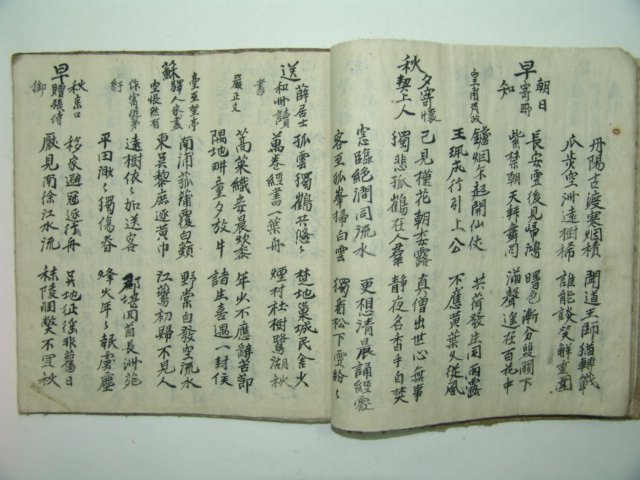 丹陽古渡寒烟積 聞道王師猶轉戰
瓜步空洲遠樹稀 誰能談笑解重圍
早朝日寄所知
長安雪後見歸鴻 曙色漸分雙闕下
紫禁朝天拜舞同 漏聲遙在百花中
皇甫茂政
鑪烟乍起開仙仗 共荷發生同雨露
玉珮成行引上公 不應黃葉久從風
秋夕寄懷契上人
已見槿花朝委露 真僧出世心無事
獨悲孤鶴在人羣 靜夜名香手自焚
窓臨絕澗聞流水 更想清晨誦經處
客至孤峯掃白雲 獨看松下雪紛紛
送薛居士和州讀書
孤雲獨鶴共悠悠 楚地巢城民舍火
萬卷經書一葉舟 煙村社樹鷺湖秋
嚴正文
蒿萊織妾晨炊黍 年少不應辭苦節
隅地畊童夕放牛 諸生若遇一封侯
蘇臺至望亭驛人家盡空悵然有作寄從弟紓
南浦菰蒲覆白蘋 野棠自發空流水
東吳黎庶逐黃巾 江鷰初歸不見人
遠樹依依如送客 那堪回首長洲苑
平田漠漠獨傷春 烽火年年報虜塵
早秋京口贈張侍御
移家避寇逐行舟 吳地征徭非舊日
厭見南徐江水流 秣陵凋弊不宜秋